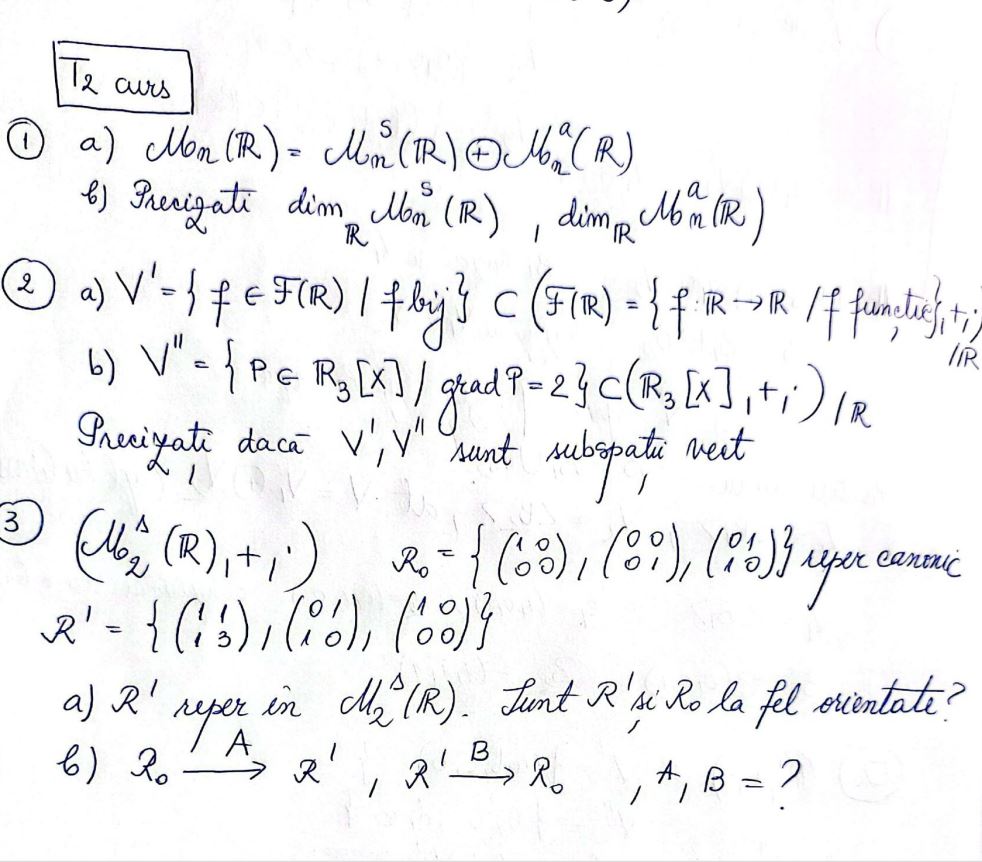 T₂ curs
① a) Mₙ(ℝ) = Mₙˢ(ℝ) ⊕ Mₙᵃ(ℝ)
b) Precizați dim_ℝ Mₙˢ(ℝ) , dim_ℝ Mₙᵃ(ℝ)
② a) V' = { f ∈ F(ℝ) / f bij } ⊂ (F(ℝ) = { f: ℝ → ℝ / f funcție}, +, ·)/ℝ
b) V'' = { P ∈ ℝ₃[X] / grad P = 2 } ⊂ (ℝ₃[X], +, ·)/ℝ
Precizați dacă V', V'' sunt subspații vect
③ (M₂ˢ(ℝ), +, ·) R₀ = { (1 0 / 0 0), (0 0 / 0 1), (0 1 / 1 0) } reper canonic
R' = { (1 1 / 1 3), (0 1 / 1 0), (1 0 / 0 0) }
a) R' reper în M₂ˢ(ℝ). Sunt R' și R₀ la fel orientate?
b) R₀ —A→ R' , R' —B→ R₀ , A, B = ?